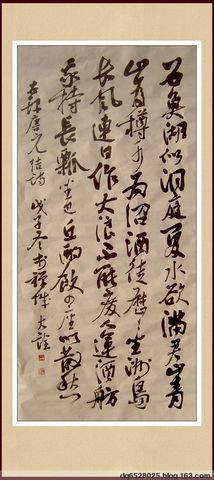 石魚湖似洞庭夏水欲满君山青
山為樽水為沼酒徒歷歷坐洲島
长风連日作大浪不能廢人運酒舫
我持長瓢坐巴丘酌飲四座以散愁
唐元结詩 戊子冬书禪城 大詮
dg6528025.blog.163.com